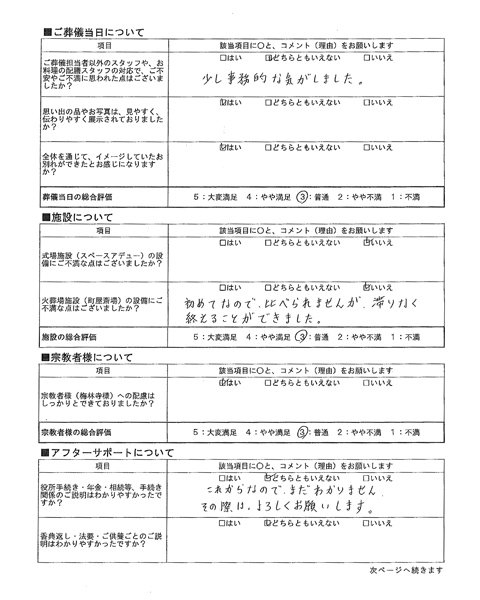 ■ご葬儀当日について
項目 該当項目に〇と、コメント(理由)をお願いします
ご葬儀担当者以外のスタッフや、お
料理の配膳スタッフの対応で、ご不
安やご不満に思われた点はございま
したか?
□はい ☑どちらともいえない □いいえ
少し事務的な気がしました。
思い出の品やお写真は、見やすく、
伝わりやすく展示されておりました
か?
☑はい □どちらともいえない □いいえ
全体を通じて、イメージしていたお
別れができたとお感じになります
か?
☑はい □どちらともいえない □いいえ
葬儀当日の総合評価 5:大変満足 4:やや満足 ③:普通 2:やや不満 1:不満
■施設について
項目 該当項目に〇と、コメント(理由)をお願いします
式場施設(スペースアデュー)の設
備にご不満な点はございましたか?
□はい □どちらともいえない ☑いいえ
火葬場施設(町屋斎場)の設備にご
不満な点はございましたか?
□はい □どちらともいえない ☑いいえ
初めてなので、比べられませんが、滞りなく
終えることができました。
施設の総合評価 5:大変満足 4:やや満足 ③:普通 2:やや不満 1:不満
■宗教者様について
項目 該当項目に〇と、コメント(理由)をお願いします
宗教者様(梅林寺様)への配慮は
しっかりとできておりましたか?
☑はい □どちらともいえない □いいえ
宗教者様の総合評価 5:大変満足 4:やや満足 ③:普通 2:やや不満 1:不満
■アフターサポートについて
項目 該当項目に〇と、コメント(理由)をお願いします
役所手続き・年金・相続等、手続き
関係のご説明はわかりやすかったで
すか?
□はい ☑どちらともいえない □いいえ
これからなので、まだわかりません
その際は、よろしくお願いします。
香典返し・法要・ご供養ごとのご説
明はわかりやすかったですか?
□はい ☑どちらともいえない □いいえ
次ページへ続きます